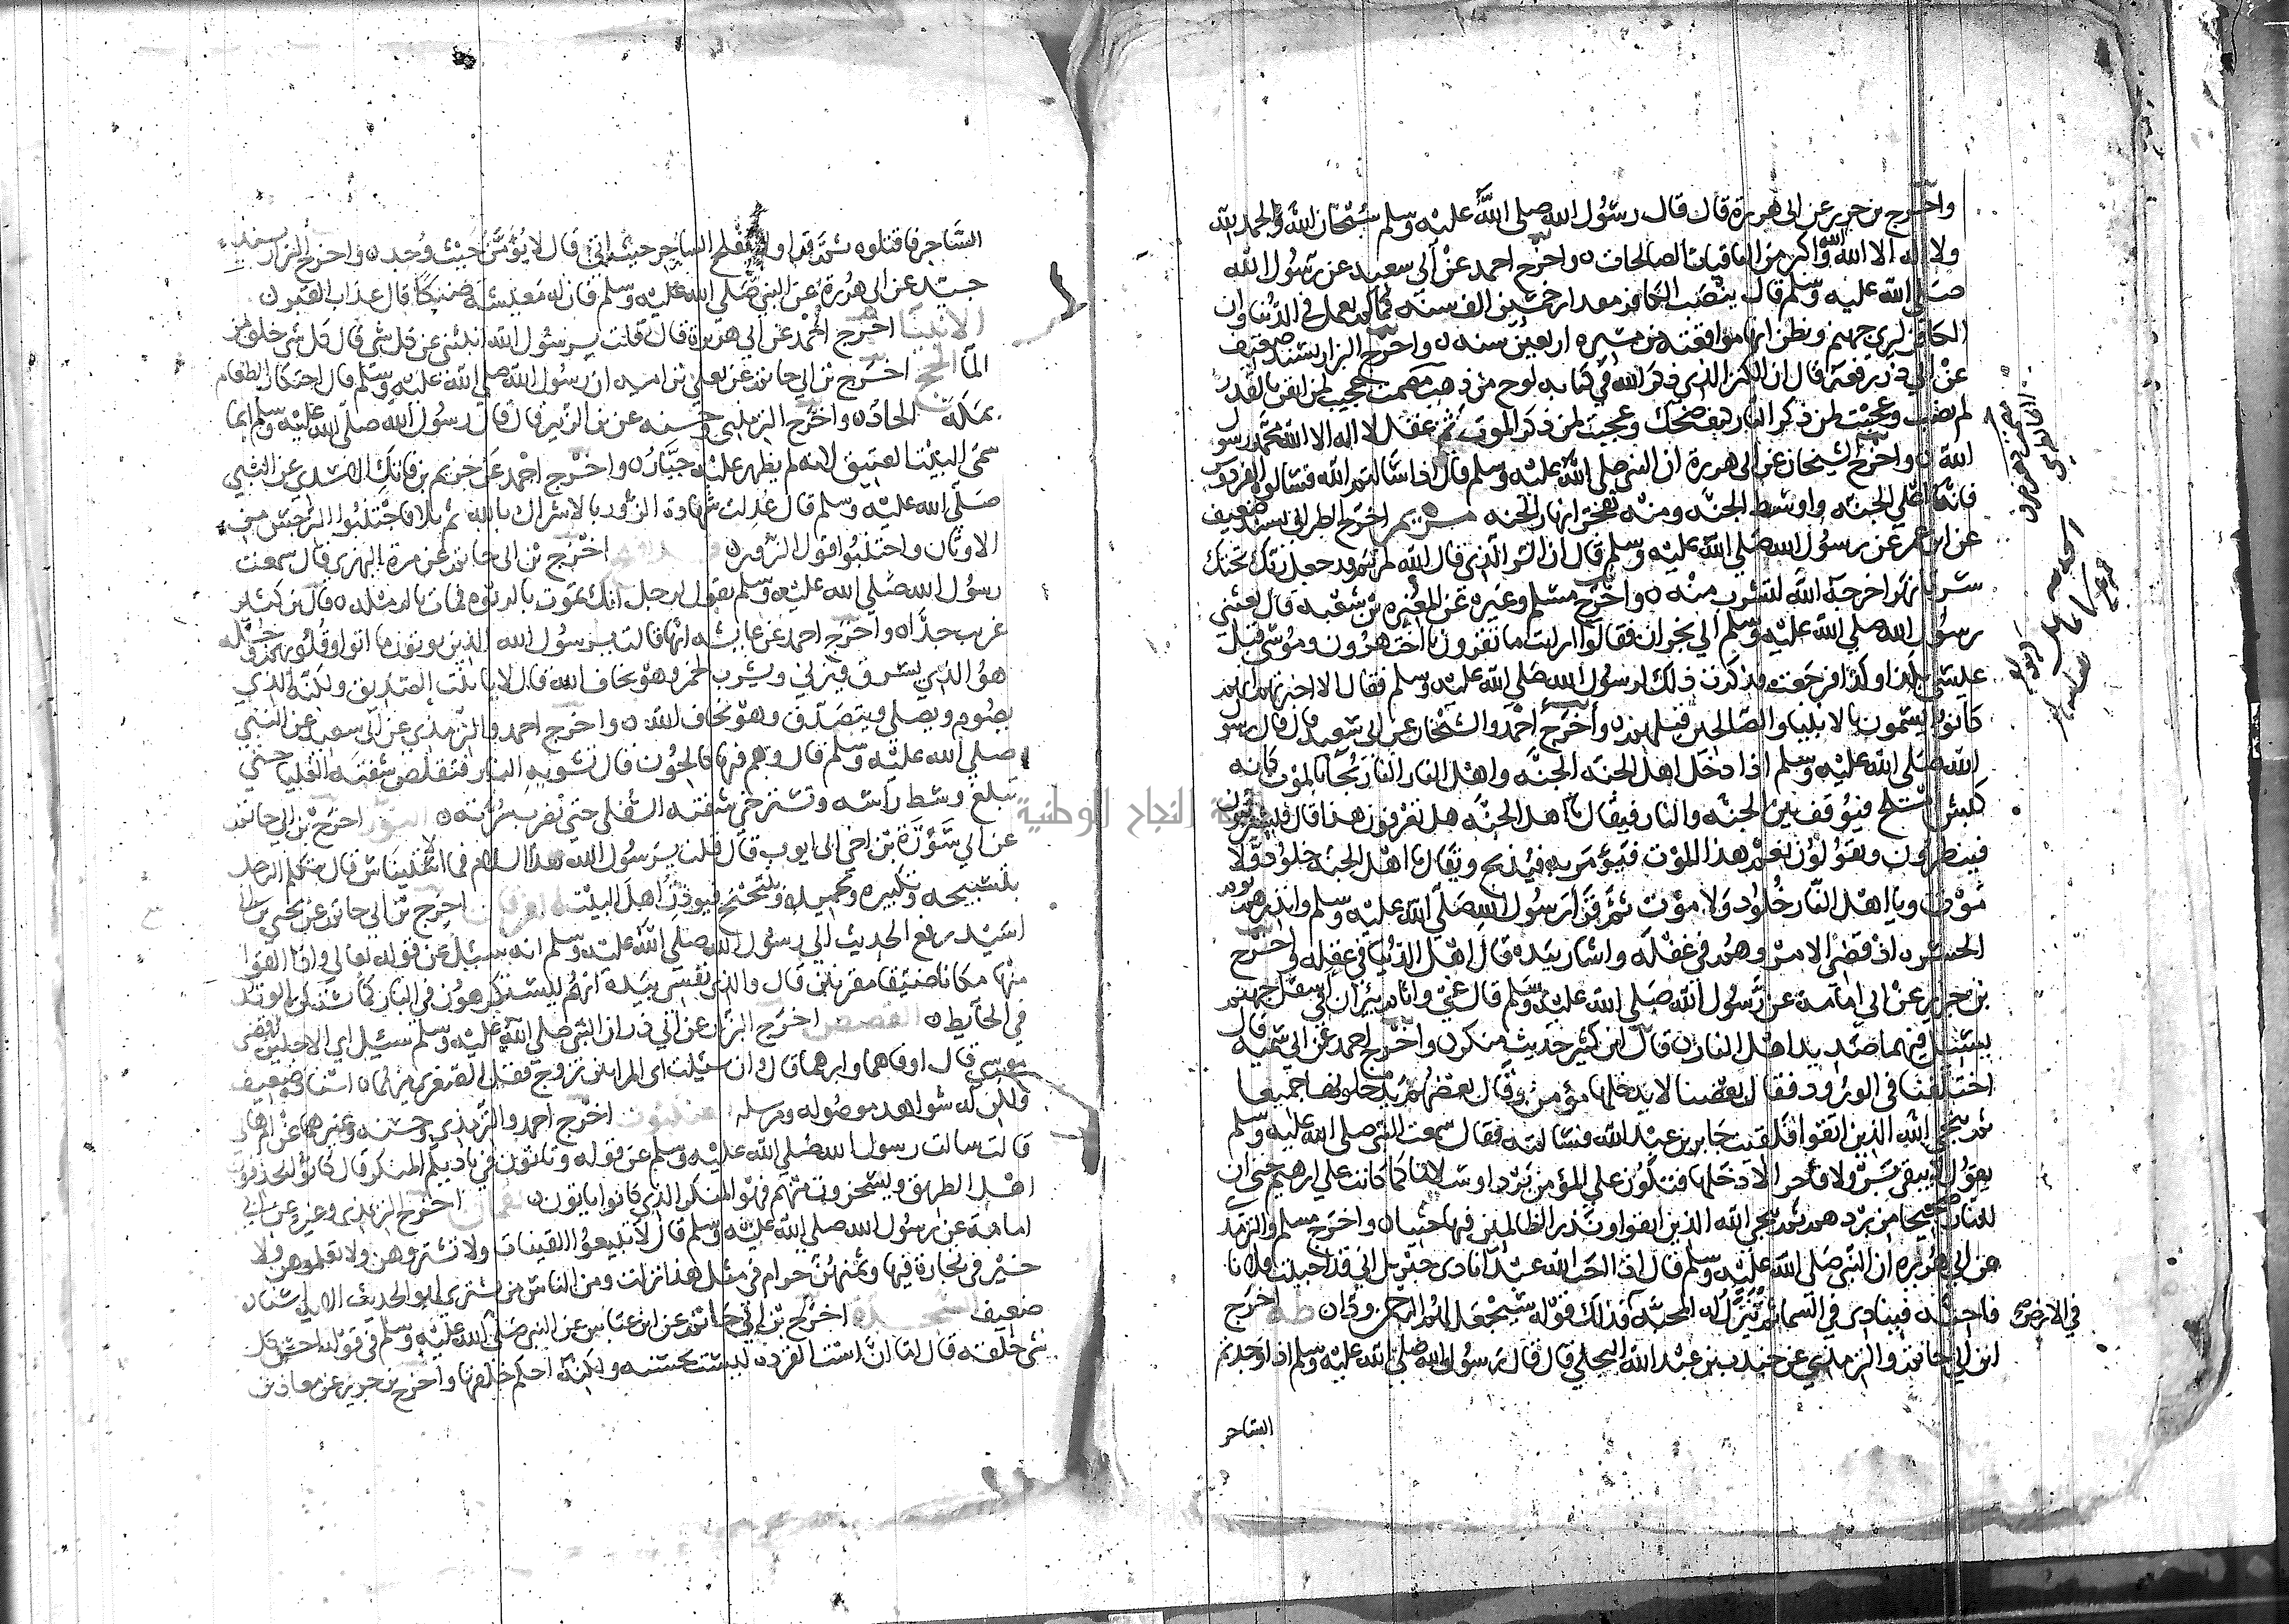 واخرج بن جرير عن ابي هريرة قال قال رسول الله صلى الله عليه وسلم سبحان الله والحمد لله
ولا اله الا الله والله اكبر من الباقيات الصالحات واخرج احمد عن ابي سعيد عن رسول الله
صلى الله عليه وسلم قال ينصب الكافر مقدار خمسين الف سنة كما لم يعمل في الدنيا وان
الكافر ليري جهنم ويظن انها مواقعته من مسيره اربعين سنه واخرج البزار بسند ضعيف
عن ابي ذر رفعه قال ان الكنز الذي ذكر الله في كتابه لوح من ذهب مصمت عجبت لمن ايقن بالقدر
لم نصب وعجبت لمن ذكر النار ثم ضحك وعجبت لمن ذكر الموت ثم غفل لا اله الا الله محمد رسول
الله واخرج الشيخان عن ابي هريرة ان النبي صلى الله عليه وسلم قال اذا سالتم الله فسالوه الفردوس
فانه اعلى الجنه واوسط الجنه ومنه تفجر انهار الجنه مريم اخرج الطبراني بسند ضعيف
عن ابن عمر عن رسول الله صلى الله عليه وسلم قال ان السري الذي قال الله لمريم قد جعل ربك تحتك
سريا نهر اخرجه الله لتشرب منه واخرج مسلم وغيره عن المغيره بن شعبه قال بعثني
رسول الله صلى الله عليه وسلم الي نجران فقالوا ارايت ما تقرون يا اخت هرون وموسى قبل
عيسى بكذا وكذا فرجعت فذكرت ذلك لرسول الله صلى الله عليه وسلم فقال الا اخبرتهم انهم
كانوا يسمون بالانبيا والصالحين قبلهم واخرج احمد والشيخان عن ابي سعيد قال قال رسول
الله صلى الله عليه وسلم اذا دخل اهل الجنه الجنه واهل النار النار يجآ بالموت كانه
كبش املح فيوقف بين الجنه والنار فيقال يا اهل الجنه هل تعرفون هذا قال فيشرئبون
فينظرون ويقولون نعم هذا الموت فيؤمر به فيذبح ويقال يا اهل الجنه خلود ولا
موت ويا اهل النار خلود ولا موت ثم قرا رسول الله صلى الله عليه وسلم وانذرهم يوم
الحسره اذ قضي الامر وهم في غفله واشار بيده قال اهل الدنيا في غفله اخرج
بن جرير عن ابي امامة عن رسول الله صلى الله عليه وسلم قال غي واثام بيران في اسفل جهنم
يسيل فيهما صديد اهل النار قال ابن كثير حديث منكر واخرج احمد عن ابي سميه قال
اختلفنا في الورود فقال بعضنا لا يدخلها مؤمن وقال بعضهم يدخلونها جميعا
ثم ينجي الله الذين اتقوا فلقيت جابر بن عبد الله فسالته فقال سمعت النبي صلى الله عليه وسلم
يقول لا يبقى بر ولا فاجر الا دخلها فتكون علي المؤمن بردا وسلاما كما كانت علي ابرهيم حتى ان
للنار ضجيجا من بردهم ثم ينجي الله الذين اتقوا ونذر الظالمين فيها جثيا واخرج مسلم والترمذي
عن ابي هريره ان النبي صلى الله عليه وسلم قال اذا احب الله عبدا نادى جبريل اني قد احببت فلانا
فاحبه فينادى في السما ثم تنزل له المحبه في الارض فذلك قوله سيجعل لهم الرحمن ودا طه اخرج
ابن ابي حاتم والترمذي عن جندب بن عبد الله البجلي قال قال رسول الله صلى الله عليه وسلم اذا وجدتم
الساحر
الساحر فاقتلوه ثم قرا ولا يفلح الساحر حيث اتى قال لا يؤمن حيث وجد واخرج البزار بسند
جيد عن ابي هريرة عن النبي صلى الله عليه وسلم فان له معيشة ضنكا قال عذاب القبر
الانبيا اخرج احمد عن ابي هريرة قال قلت يرسول الله انبئني عن كل شي قال كل شي خلق من
المآ الحج اخرج بن ابي حاتم عن يعلي بن اميه ان رسول الله صلى الله عليه وسلم قال احتكار الطعام
بمكة الحاد واخرج الترمذي وحسنه عن بن الزبير قال قال رسول الله صلى الله عليه وسلم انما
سمى البيت العتيق لانه لم يظهر عليه جبار واخرج احمد عن خريم بن فاتك الاسدي عن النبي
صلى الله عليه وسلم قال عدلت شهادة الزور بالاشراك بالله ثم تلا فاجتنبوا الرجس من
الاوثان واجتنبوا قول الزور اخرج بن ابي حاتم عن مرة البهزي قال سمعت
رسول الله صلى الله عليه وسلم يقول لرجل انك تموت بالربوه فمات بالرمله قال بن كثير
غريب جدا واخرج احمد عن عايشه انها قالت يرسول الله الذين يوتون ما اتوا وقلوبهم وجله
هو الذي يسرق ويزني ويشرب الخمر وهو يخاف الله قال لا يا بنت الصديق ولكنه الذي
يصوم ويصلي ويتصدق وهو يخاف الله واخرج احمد والترمذي عن ابي سعيد عن النبي
صلى الله عليه وسلم قال وهم فيها كالحون قال تشويه النار فتقلص شفته العليا حتى
تبلغ وسط راسه وتسترخي شفته السفلى حتى تضرب سرته النور اخرج بن ابي حاتم
عن ابي سورة بن اخي ابي ايوب قال قلت يرسول الله هذا السلام فما الاستيناس قال يتكلم الرجل
بتسبيحه وتكبيره وتحميده ويتنحنح فيوذن اهل البيت الفرقان اخرج بن ابي حاتم عن يحيى بن ابي
اسيد يرفع الحديث الي رسول الله صلى الله عليه وسلم انه سئل عن قوله تعالي واذا القوا
منها مكانا ضيقا مقرنين قال والذي نفسي بيده انهم ليستكرهون في النار كما يستكره الوتد
في الحايط القصص اخرج البزار عن ابي ذر ان النبي صلى الله عليه وسلم سئل اي الاجلين قضى
موسى قال اوفاهما وابرهما قال وان سئلت اى المراتين تزوج فقل الصغرى منهما اسناده ضعيف
ولكن له شواهد موصوله ومرسله العنكبوت اخرج احمد والترمذي وحسنه وغيرهما عن ام هاني
قالت سالت رسول الله صلى الله عليه وسلم عن قوله وتاتون في ناديكم المنكر قال كانوا يحذفون
اهل الطريق ويسخرون منهم فهو المنكر الذي كانوا ياتون لقمان اخرج الترمذي وغيره عن ابي
امامة عن رسول الله صلى الله عليه وسلم قال لا تبيعوا القينات ولا تشتروهن ولا تعلموهن ولا
خير في تجارة فيها وثمنهن حرام في مثل هذا نزلت ومن الناس من يشتري لهو الحديث الاية اسناده
ضعيف السجدة اخرج بن ابي حاتم عن ابن عباس عن النبي صلى الله عليه وسلم في قوله احسن كل
شي خلقه قال اما ان است القرده ليست بحسنه ولكنه احكم خلقها واخرج بن جرير عن معاذ بن